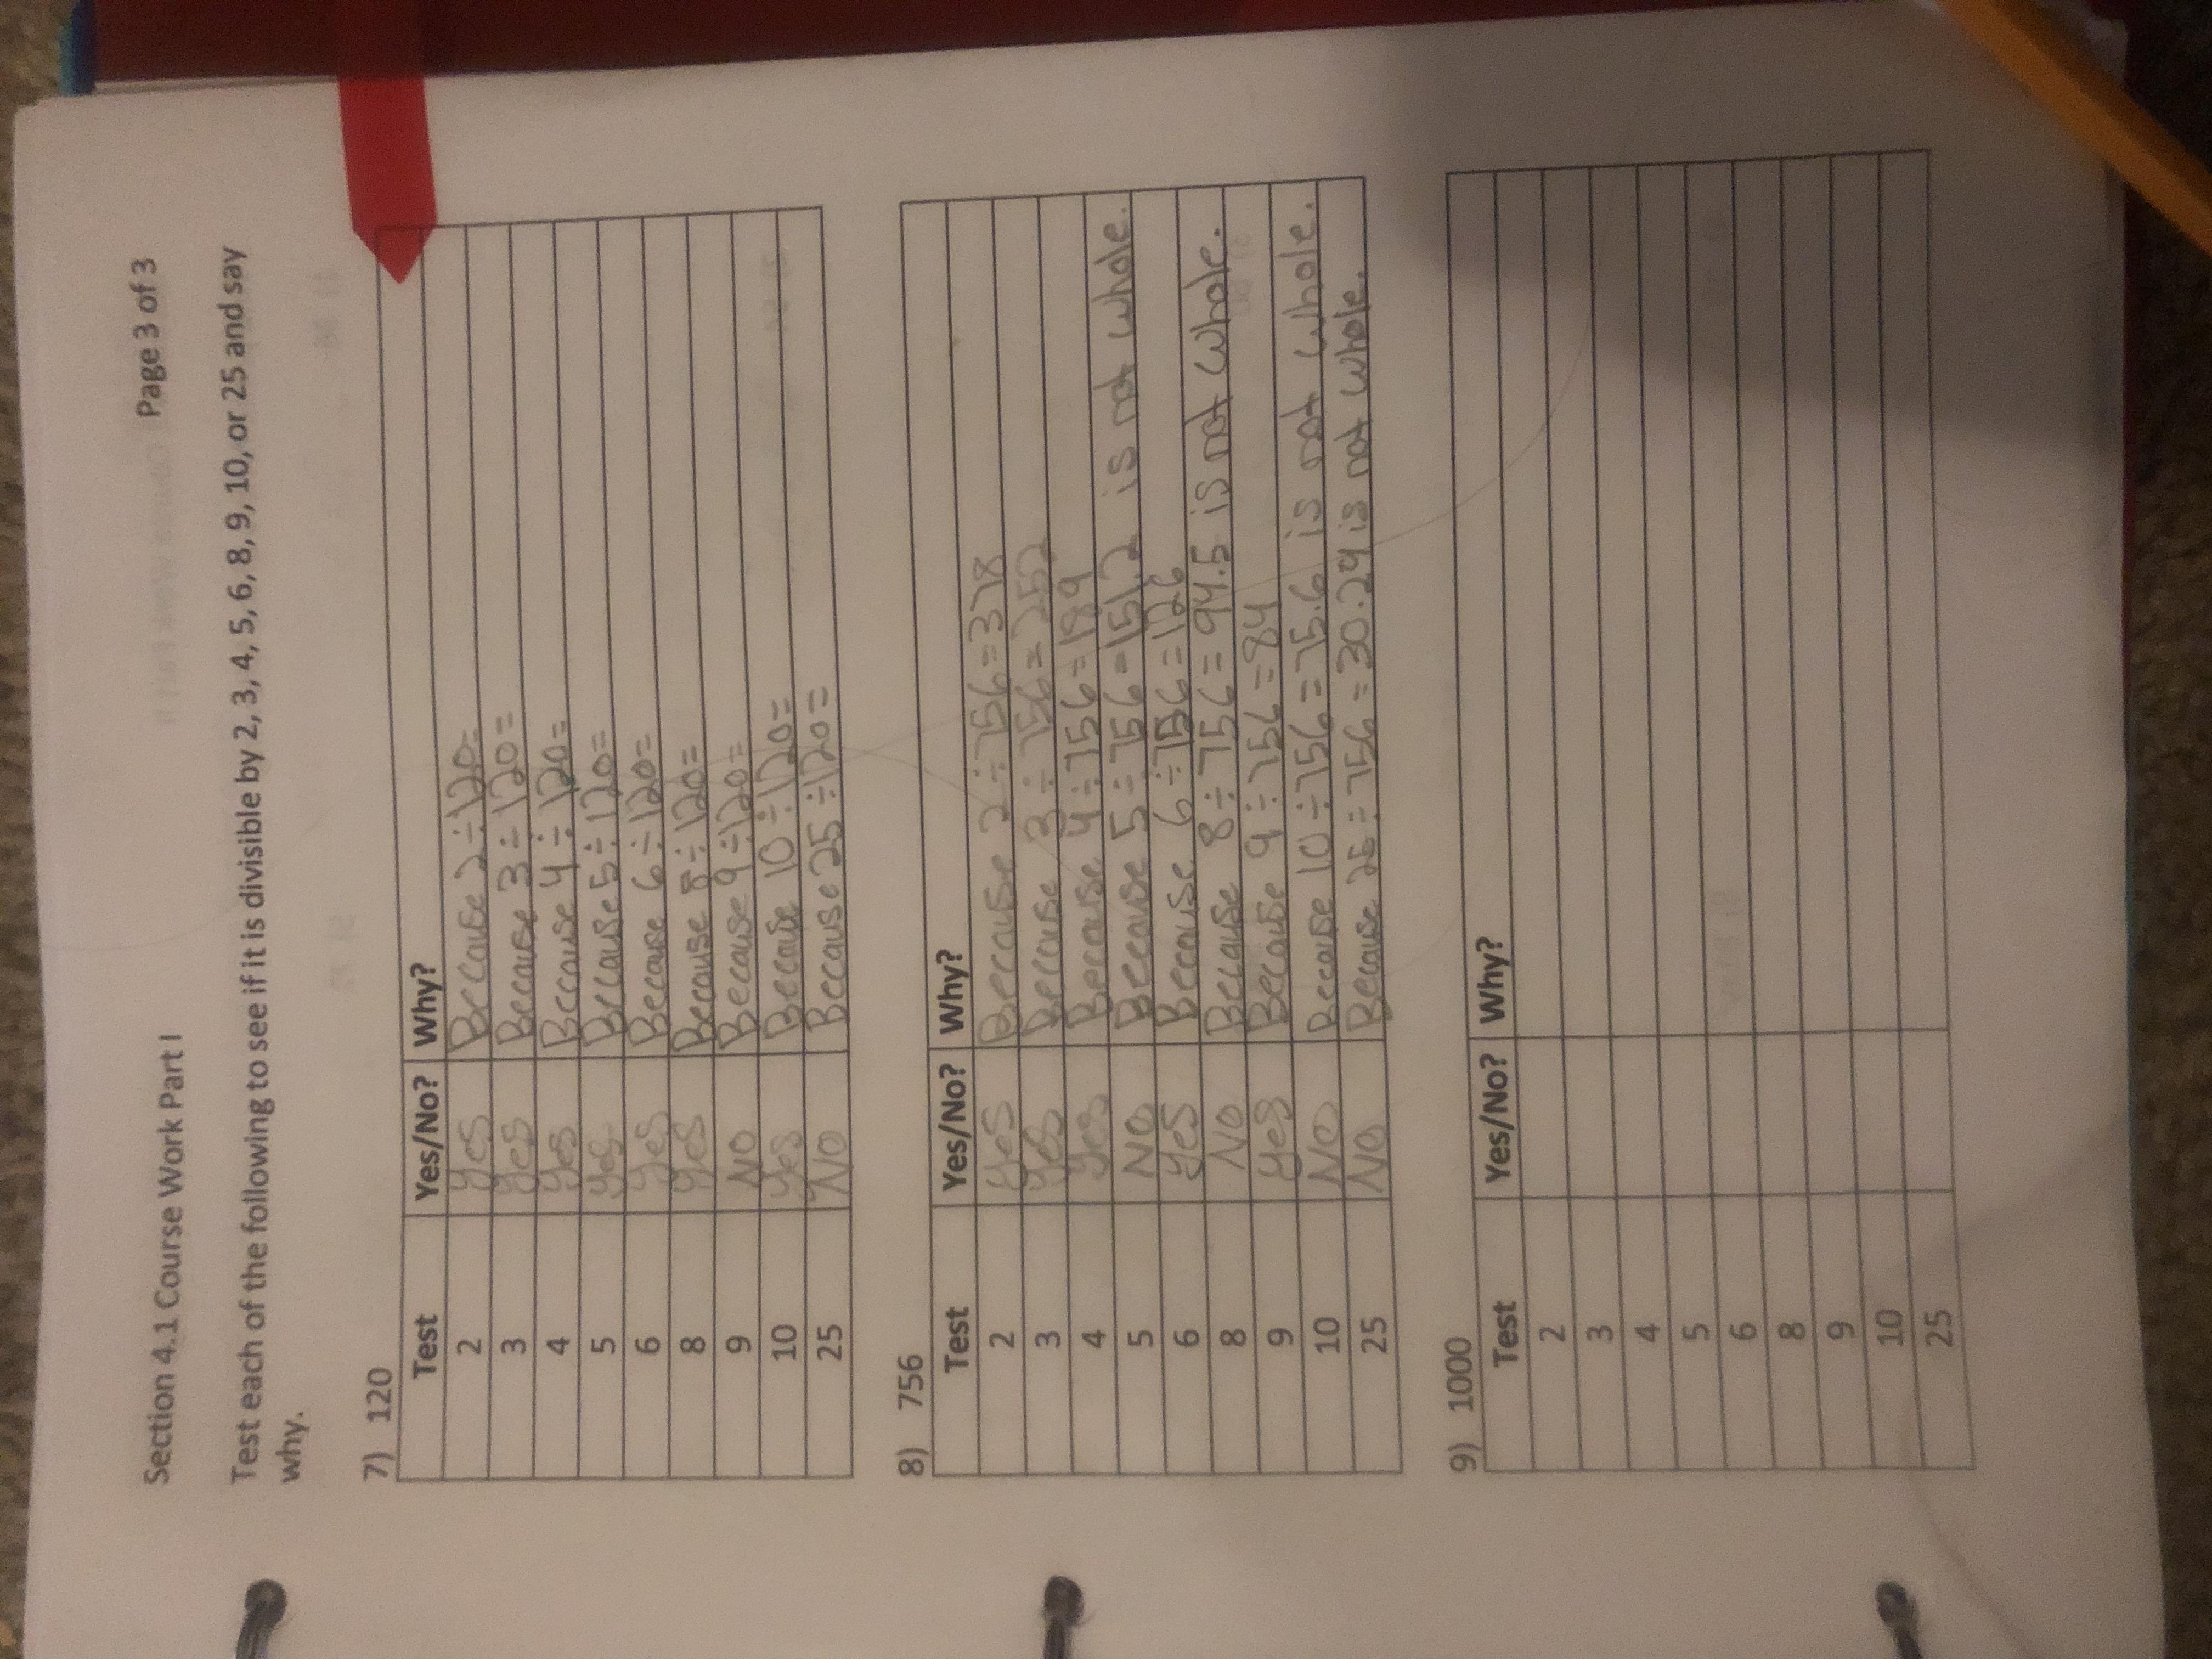 Section 4.1 Course Work Part I Page 3 of 3
Test each of the following to see if it is divisible by 2, 3, 4, 5, 6, 8, 9, 10, or 25 and say
why.
7) 120
Test Yes/No? Why?
2 Yes Because 2÷120=
3 Yes Because 3÷120=
4 Yes Because 4÷120=
5 Yes Because 5÷120=
6 Yes Because 6÷120=
8 Yes Because 8÷120=
9 No Because 9÷120=
10 Yes Because 10÷120=
25 No Because 25÷120=
8) 756
Test Yes/No? Why?
2 Yes Because 2÷756=378
3 Yes Because 3÷756=252
4 Yes Because 4÷756=189
5 No Because 5÷756=151.2 is not whole.
6 Yes Because 6÷756=126
8 No Because 8÷756=94.5 is not whole.
9 Yes Because 9÷756=84
10 No Because 10÷756=75.6 is not whole.
25 No Because 25÷756=30.24 is not whole.
9) 1000
Test Yes/No? Why?
2
3
4
5
6
8
9
10
25